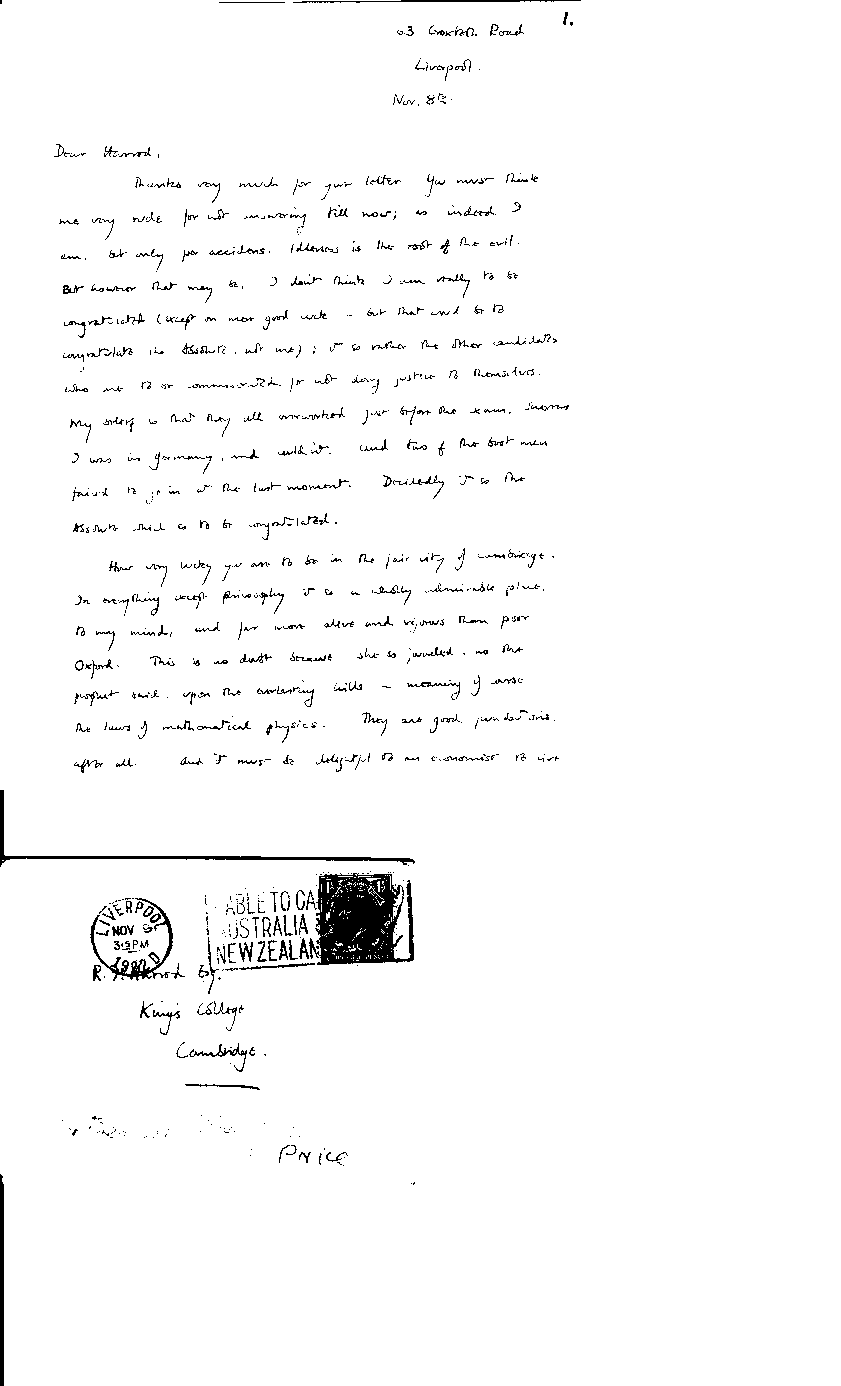 1.
63 Croxteth Road
Liverpool.
Nov. 8th.
Dear Harrod,
Thanks very much for your letter. You must think
me very rude for not answering till now; as indeed I
am. But only per accidens. Idleness is the root of the evil.
But however that may be, I don't think I am really to be
congratulated (except on mere good luck – but that would be to
congratulate the Absolute, not me); it is rather the other candidates
who are to be commiserated for not doing justice to themselves.
My belief is that they all overworked just before the exam. whereas
I was in Germany, and couldn't. And two of the best men
failed to go in at the last moment. Decidedly it is the
Absolute which is to be congratulated.
How very lucky you are to be in the fair city of Cambridge.
In everything except philosophy it is a wholly admirable place,
to my mind, and far more alive and vigorous than poor
Oxford. This is no doubt because she is founded, as the
prophet said, upon the everlasting hills – meaning of course
the laws of mathematical physics. They are good foundations,
after all. And it must be delightful to an economist to live
LIVERPOOL
NOV 8
3 15 PM
ABLE TO CA
AUSTRALIA
NEW ZEALAN
R. F. Harrod Esq.
King's College
Cambridge.
PRICE